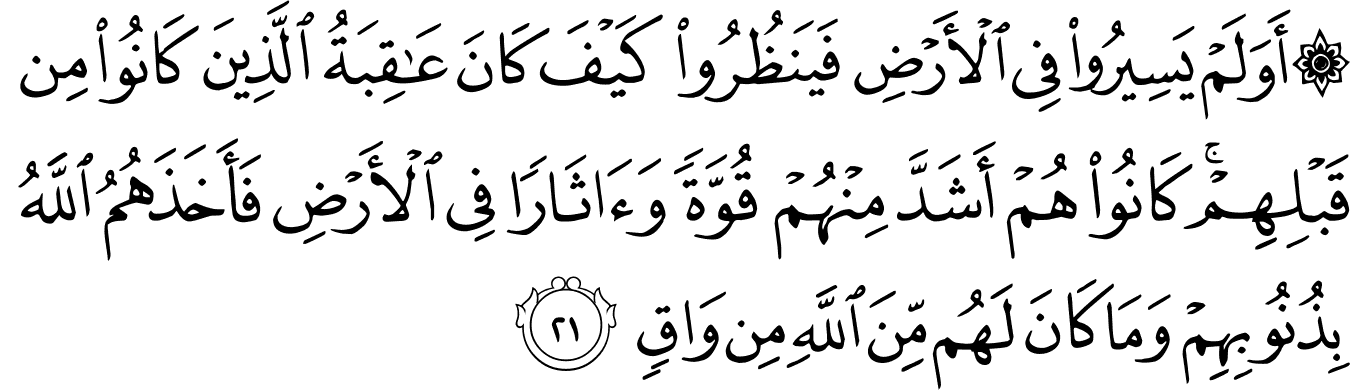 ۞ أَوَلَمۡ يَسِيرُواْ فِي ٱلۡأَرۡضِ فَيَنظُرُواْ كَيۡفَ كَانَ عَٰقِبَةُ ٱلَّذِينَ كَانُواْ مِن
قَبۡلِهِمۡۚ كَانُواْ هُمۡ أَشَدَّ مِنۡهُمۡ قُوَّةٗ وَءَاثَارٗا فِي ٱلۡأَرۡضِ فَأَخَذَهُمُ ٱللَّهُ
بِذُنُوبِهِمۡ وَمَا كَانَ لَهُم مِّنَ ٱللَّهِ مِن وَاقٖ ٢١